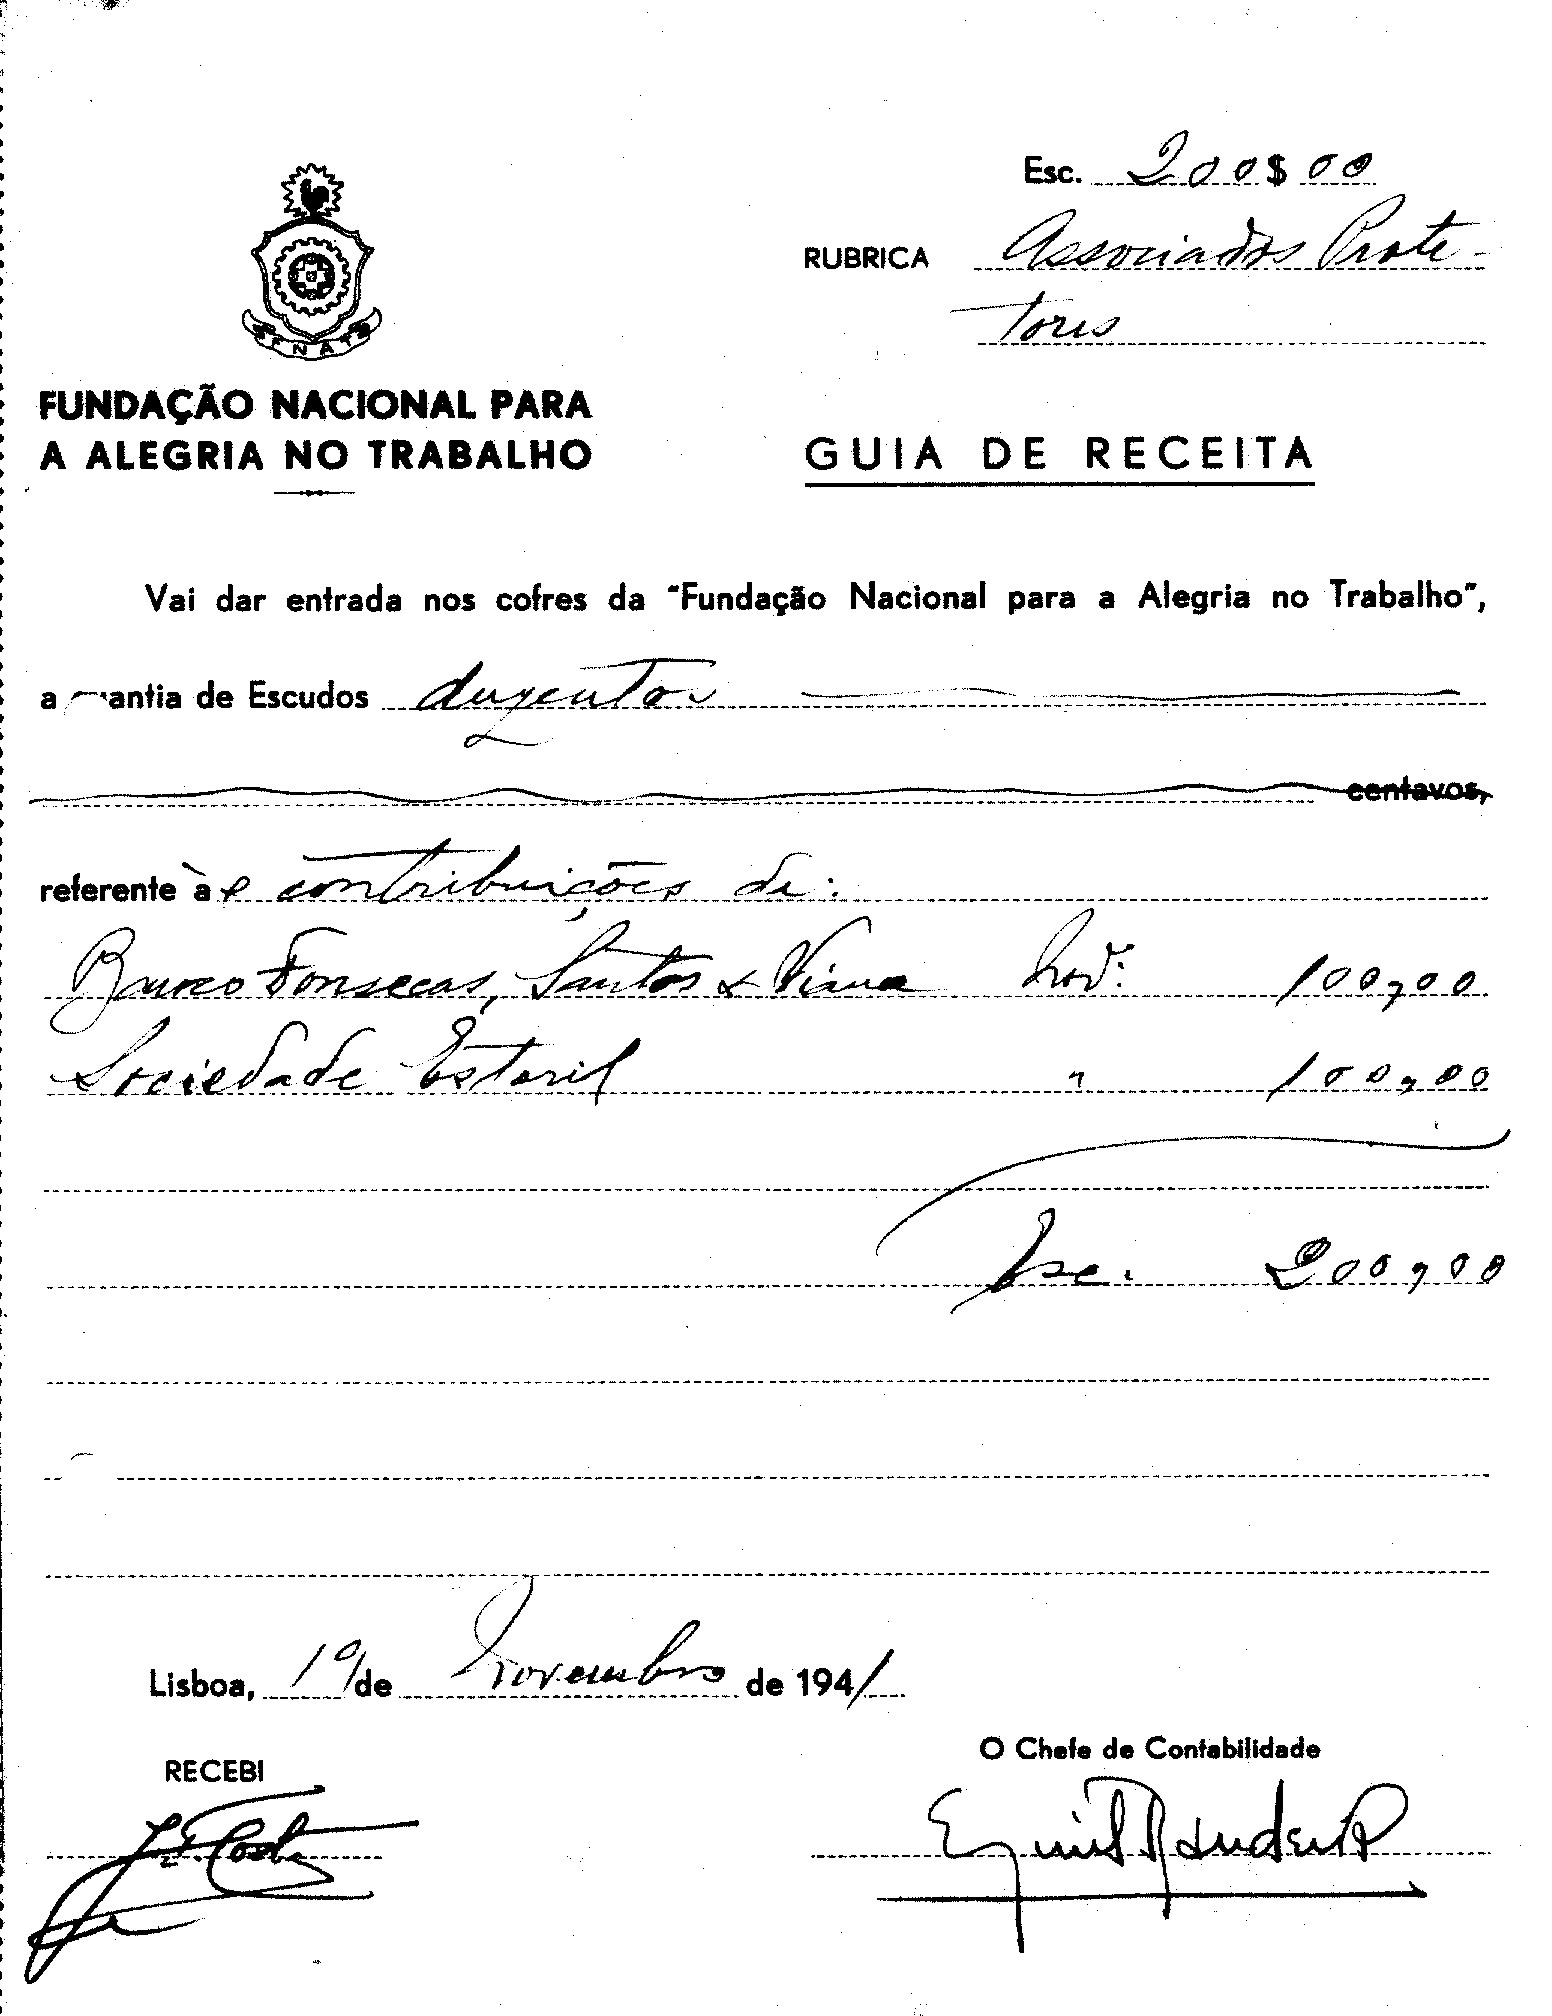 Esc. 200$00
RUBRICA Associados Prote-
tores
FNAT
FUNDAÇÃO NACIONAL PARA
A ALEGRIA NO TRABALHO
GUIA DE RECEITA
Vai dar entrada nos cofres da "Fundação Nacional para a Alegria no Trabalho",
a quantia de Escudos duzentos
centavos,
referente às contribuições de:
Banco Fonsecas, Santos & Viana Nov.: 100,00
Sociedade Estoril " 100,00
Esc. 200,00
Lisboa, 10 de Novembro de 1941
RECEBI
O Chefe de Contabilidade
Costa